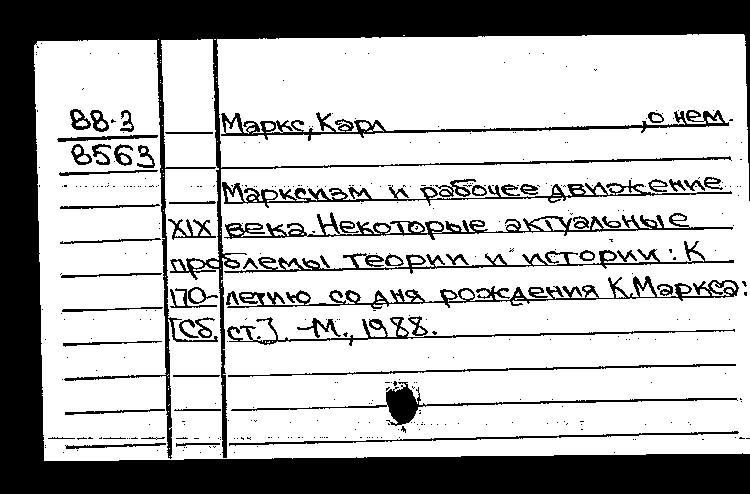 88-3 Маркс, Карл , о нем.
8563
Марксизм и рабочее движение
XIX века. Некоторые актуальные
проблемы теории и истории: К
170-летию со дня рождения К.Маркса:
[Сб. ст.]. -М., 1988.